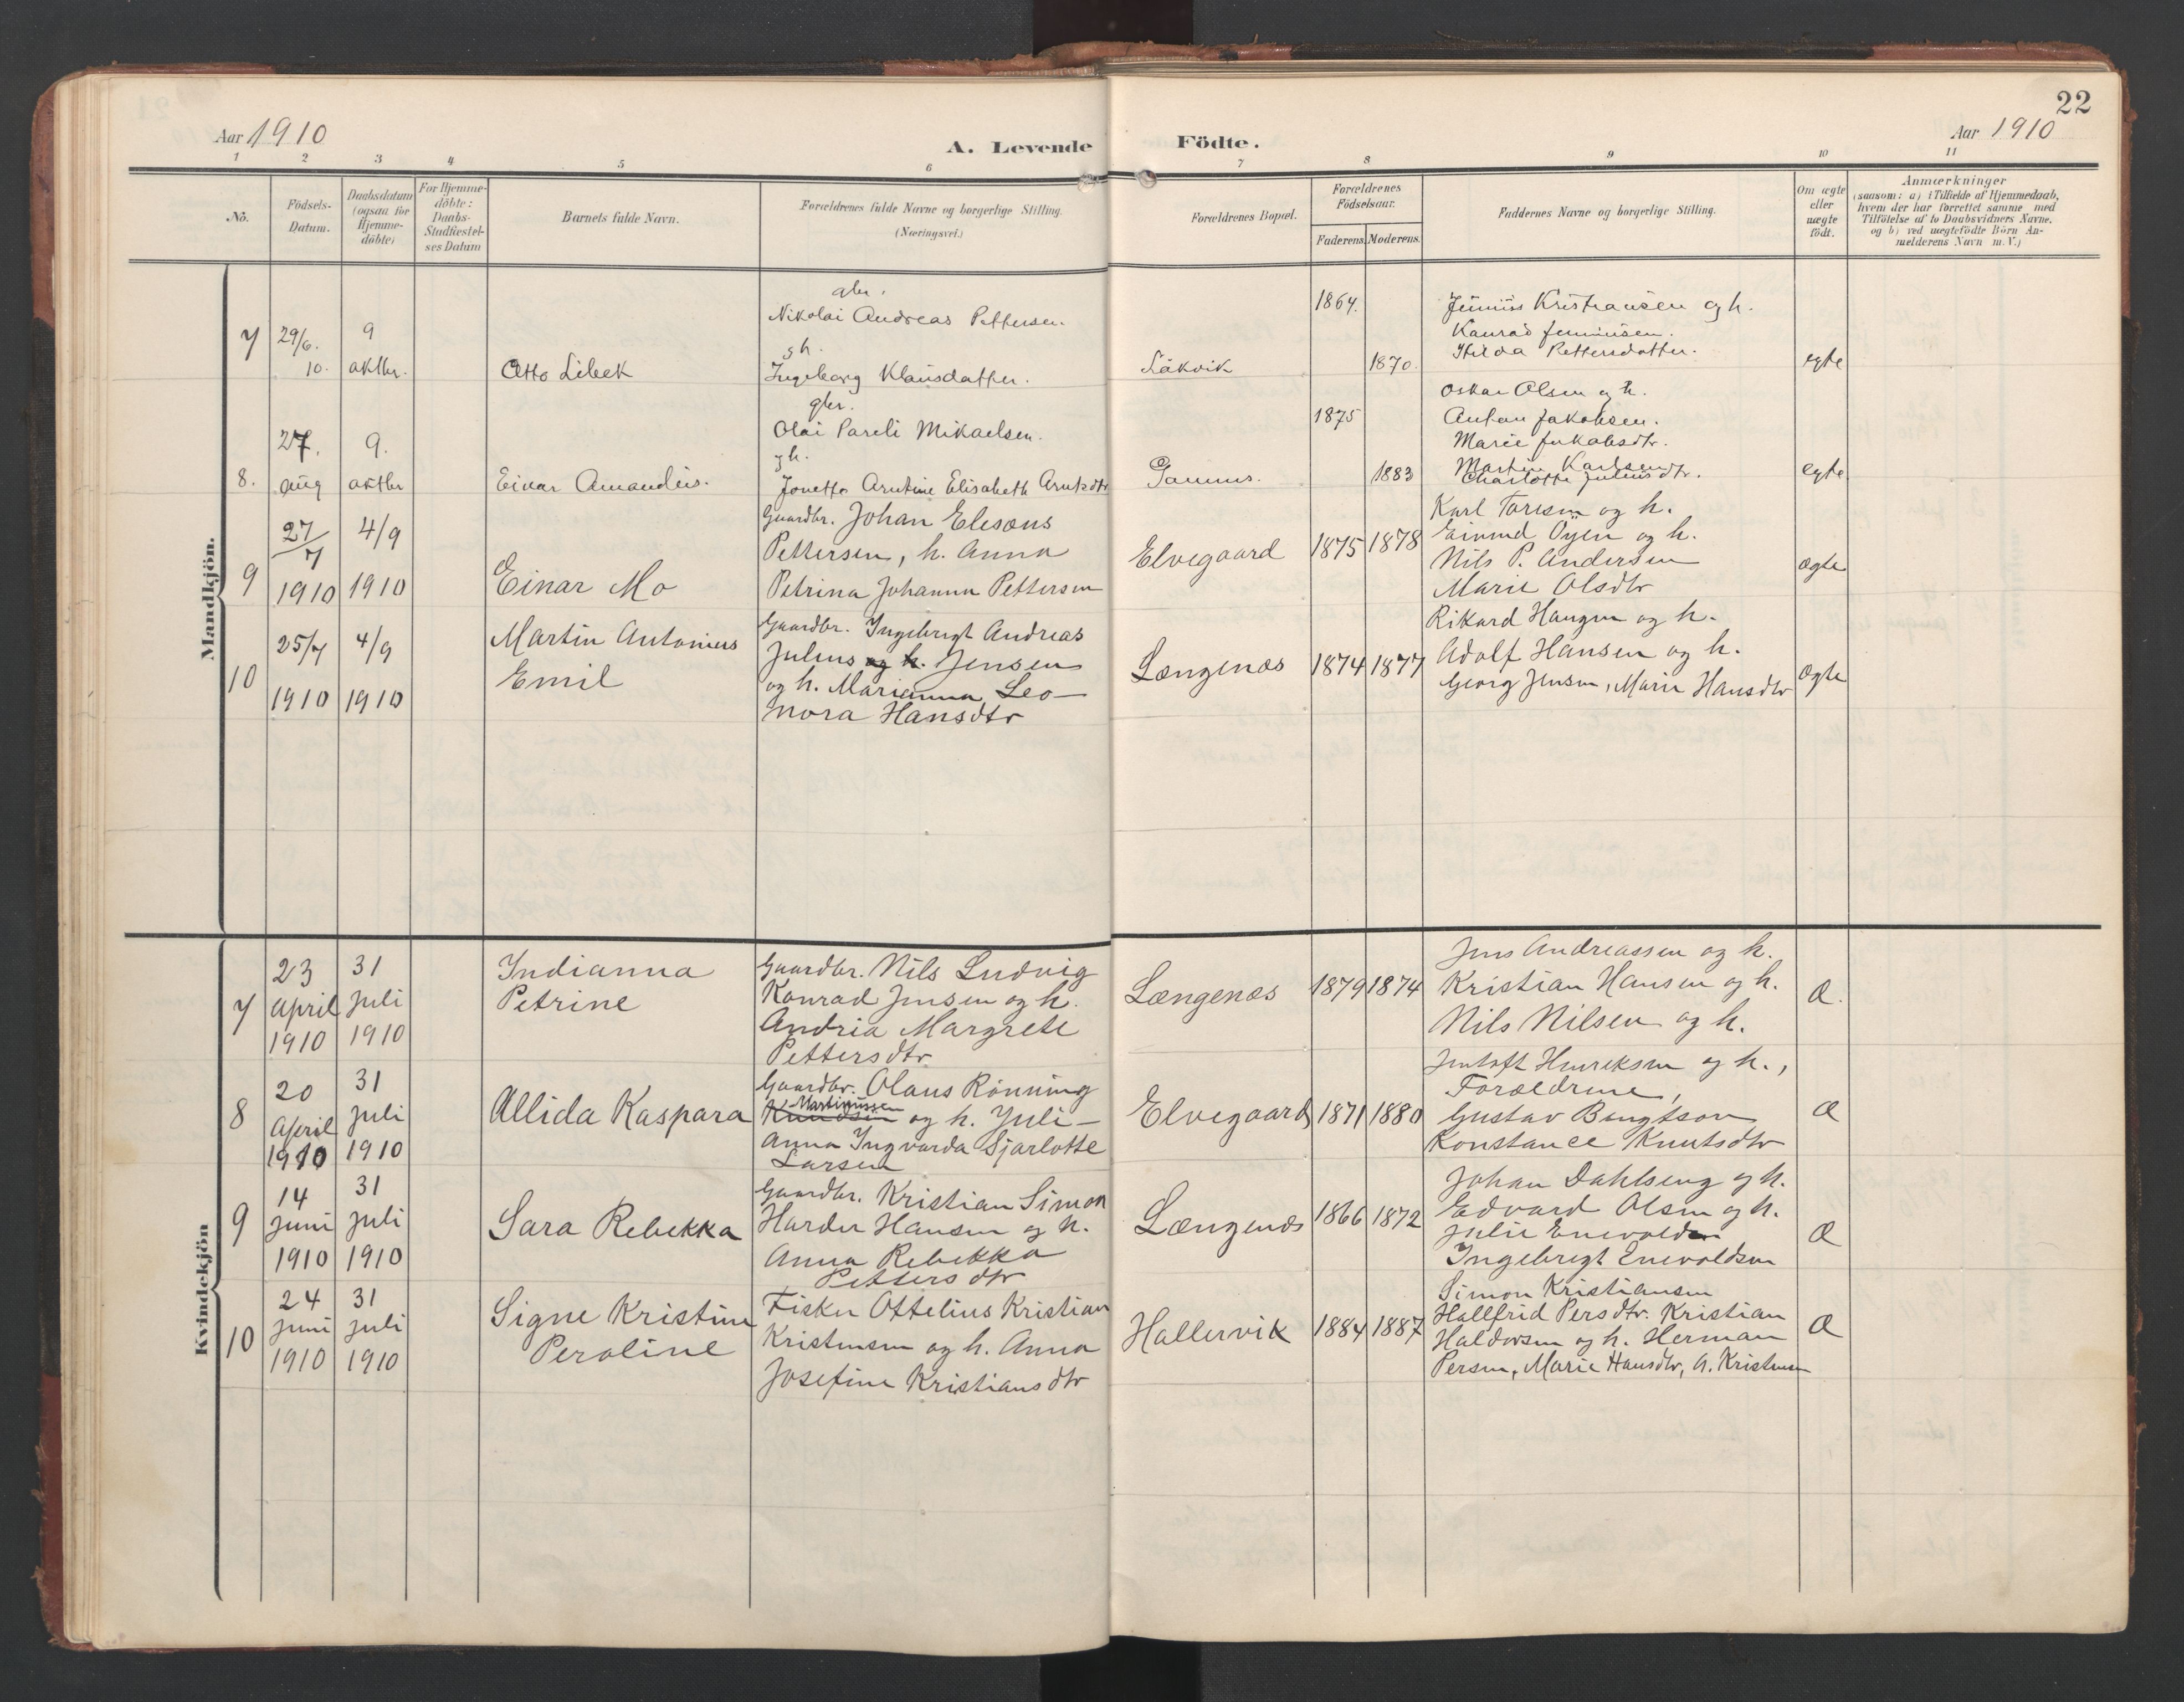 22
Aar 1910
A. Levende Födte.
Aar 1910
1 2 3 4 5 6 7 8 9 10 11
No.
Födsels-
Datum.
Daabsdatum
(ogsaa for
Hjemme-
döbte)
For Hjemme-
döbte:
Daabs-
Stadfæstel-
ses Datum
Barnets fulde Navn.
Forældrenes fulde Navne og borgerlige Stilling.
(Næringsvei.)
Forældrenes Bopæl.
Forældrenes
Födselsaar.
Faderens. Moderens.
Faddernes Navne og borgerlige Stilling.
Om ægte
eller
uægte
födt.
Anmærkninger
(saasom: a) i Tilfælde af Hjemmedaab,
hvem der har forrettet samme med
Tilföielse af to Daabsvidners Navne,
og b) ved uægtefödte Börn An-
melderens Navn m. V.)
Mandkjön.
7
29/6.
10.
9
oktbr.
Otto Libek
gbr.
Nikolai Andreas Pettersen.
gh.
Ingeborg Klausdatter.
Låkvik
1864.
1870.
Junius Kristiansen og h.
Konrad Juniusen.
Hilda Pettersdatter.
egte
8.
27.
aug
9.
oktbr
Einar Amandus.
gbr.
Olai Pareli Mikaelsen.
gh.
Jonetta Arntine Elisabeth Arntzdtr
Gammes.
1875
1883
Oskar Olsen og h.
Anton Jakobsen.
Marie Jakobsdtr.
Martin Karlsen
Charlotte Juliusdtr.
egte
9
27/7
1910
4/9
1910
Einar Mo
Gaardbr. Johan Elisæus
Pettersen, h. Anna
Petrina Johanna Pettersen
Elvegaard
1875 1878
Karl Toresen og h.
Eivind Öyen og h.
Nils P. Andersen
Marie Olsdtr
ægte
10
25/7
1910
4/9
1910
Martin Antonius
Emil
Gaardbr. Ingebrigt Andreas
Julius og h. Jensen
og h. Marianna Leo-
nora Hansdtr
Længenæs
1874 1877
Rikard Haugen og h.
Adolf Hansen og h.
Georg Jensen, Marie Hansdtr
ægte
Kvindekjön
7
23
April
1910
31
Juli
1910
Indianna
Petrine
Gaardbr. Nils Ludvig
Konrad Jensen og h.
Andria Margrete
Pettersdtr
Længenæs
1879 1874
Jens Andreassen og h.
Kristian Hansen og h.
Nils Nilsen og h.
Æ.
8
20
April
1910
31
Juli
1910
Allida Kaspara
Gaardbr. Olaus Rönning
Martinussen
Knudsen og h. Juli-
anna Ingvarda Sjarlotte
Larsen
Elvegaard
1871 1880
Jentoft Henriksen og h.,
Forældrene,
Gustav Bengtson
Konstance Knutsdtr
Æ
9
14
Juni
1910
31
Juli
1910
Sara Rebekka
Gaardbr. Kristian Simon
Harder Hansen og h.
Anna Rebekka
Pettersdtr
Længenæs
1866 1872
Johan Dahlseng og h.
Edvard Olsen og h.
Julie Enevoldsen
Ingebrigt Enevoldsen
Æ
10
24
Juni
1910
31
Juli
1910
Signe Kristine
Peroline
Fisker Ottelius Kristian
Kristensen og h. Anna
Josefine Kristiansdtr
Hallervik
1884 1887
Simon Kristiansen
Hallfrid Persdtr. Kristian
Haldorsen og h. Herman
Persen, Marie Hansdtr, A. Kristensen
Æ